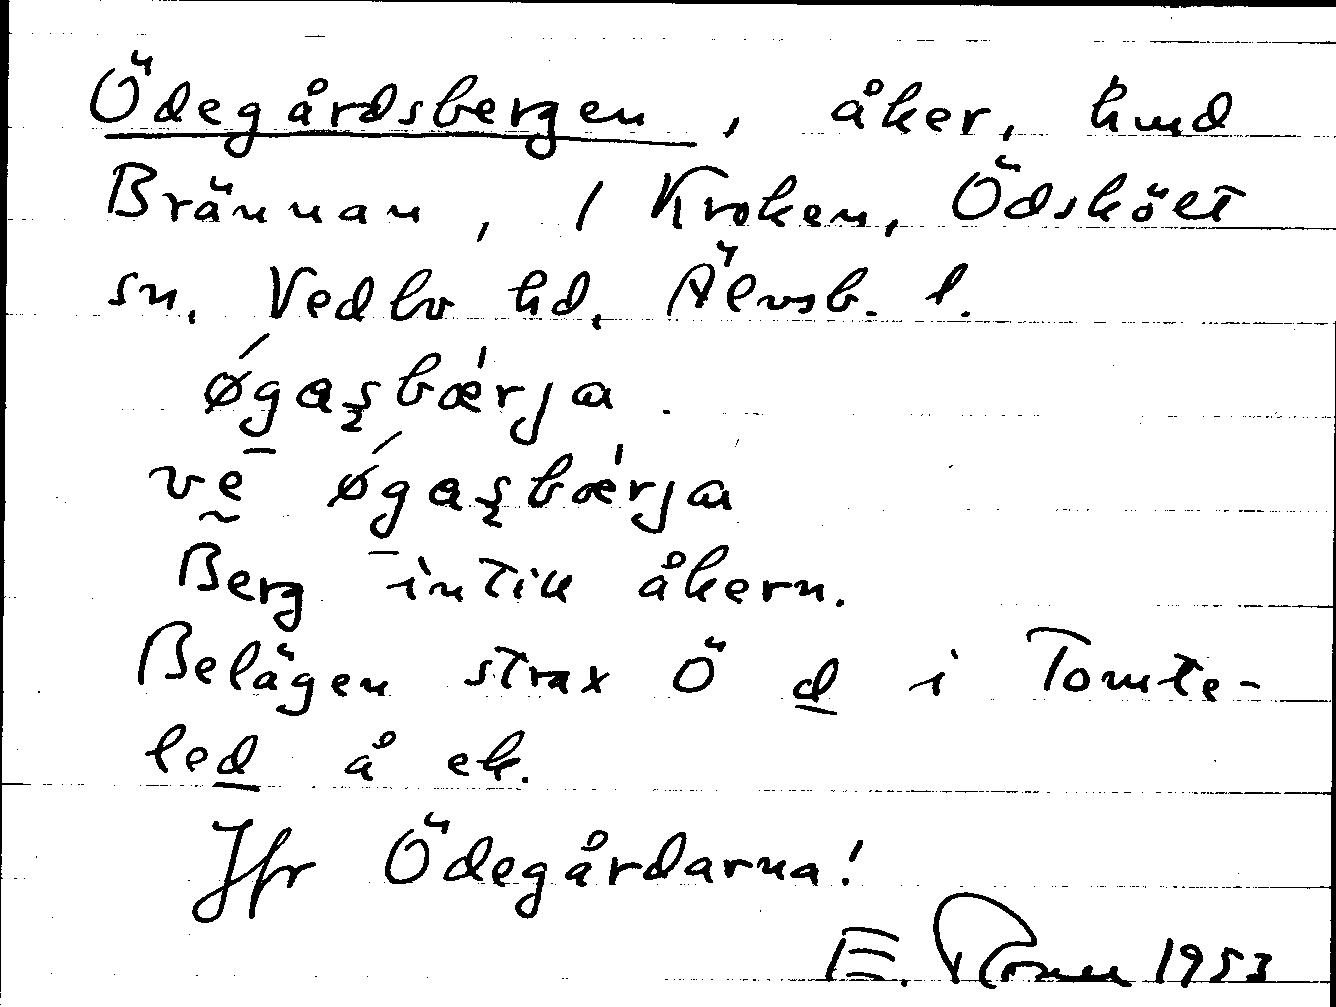 Ödegårdsbergen, åker, hmd
Brännan, 1 Kroken, Ödsköлt
sn. Vedbo hd. Älvsb. l.
ǿgaʂbæ̍rja.
ve̅ ǿgaʂbæ̍rja
Berg intill åkern.
Belägen strax Ö d i Tomte-
led å ek.
Jfr Ödegårdarna!
E. 1953